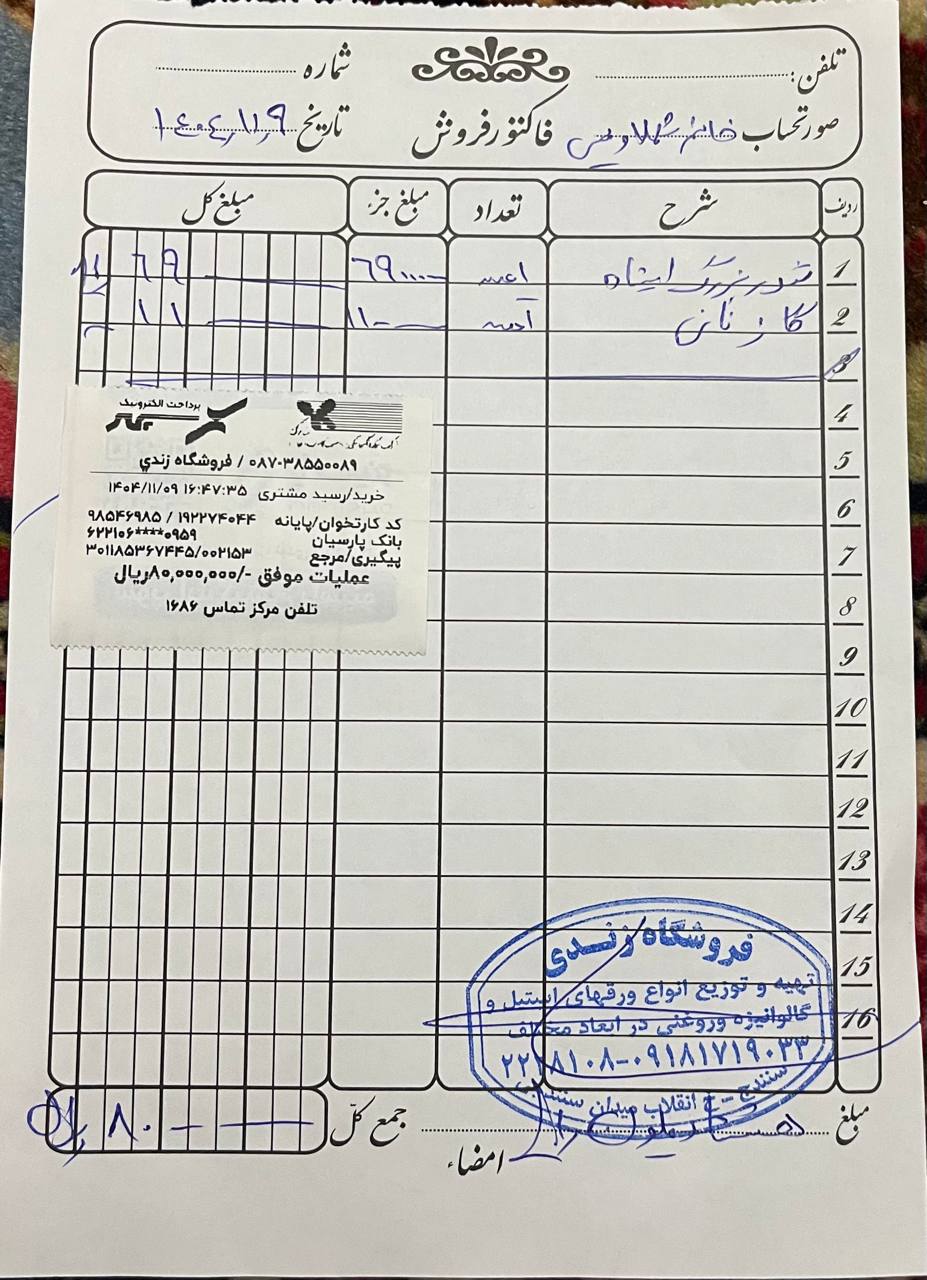 تلفن:
شماره
صورتحساب خانم
فاکتور فروش
تاریخ ۱۴۰۴٫۱۱٫۹
ردیف شرح تعداد مبلغ جزء مبلغ کل
1 بزرگ ۱عدد ۶۹
2 گاز ۱۱ ۱۱
3
4
5
6
7
8
9
10
11
12
13
14
15
16
پرداخت الکترونیک
۰۸۷-۳۸۵۵۰۰۸۹ / فروشگاه زندي
خرید/رسید مشتری ۱۶:۴۷:۳۵ ۱۴۰۴/۱۱/۰۹
کد کارتخوان/پایانه ۱۹۲۲۷۴۰۴۴ / ۹۸۵۴۶۹۸۵
بانک پارسیان ۶۲۲۱۰۶****۰۹۵۹
پیگیری/مرجع ۳۰۱۱۸۵۳۶۷۴۴۵/۰۰۲۱۵۳
عملیات موفق -/۸۰,۰۰۰,۰۰۰ریال
تلفن مرکز تماس ۱۶۸۶
فروشگاه زندی
تهیه و توزیع انواع ورقهای استیل و
گالوانیزه وروغنی در ابعاد مختلف
۰۹۱۸۱۷۱۹۰۳۳-۲۲۲۸۱۰۸
سنندج - خ انقلاب میدان
مبلغ
جمع کلّ ۸۰ ریال
امضاء